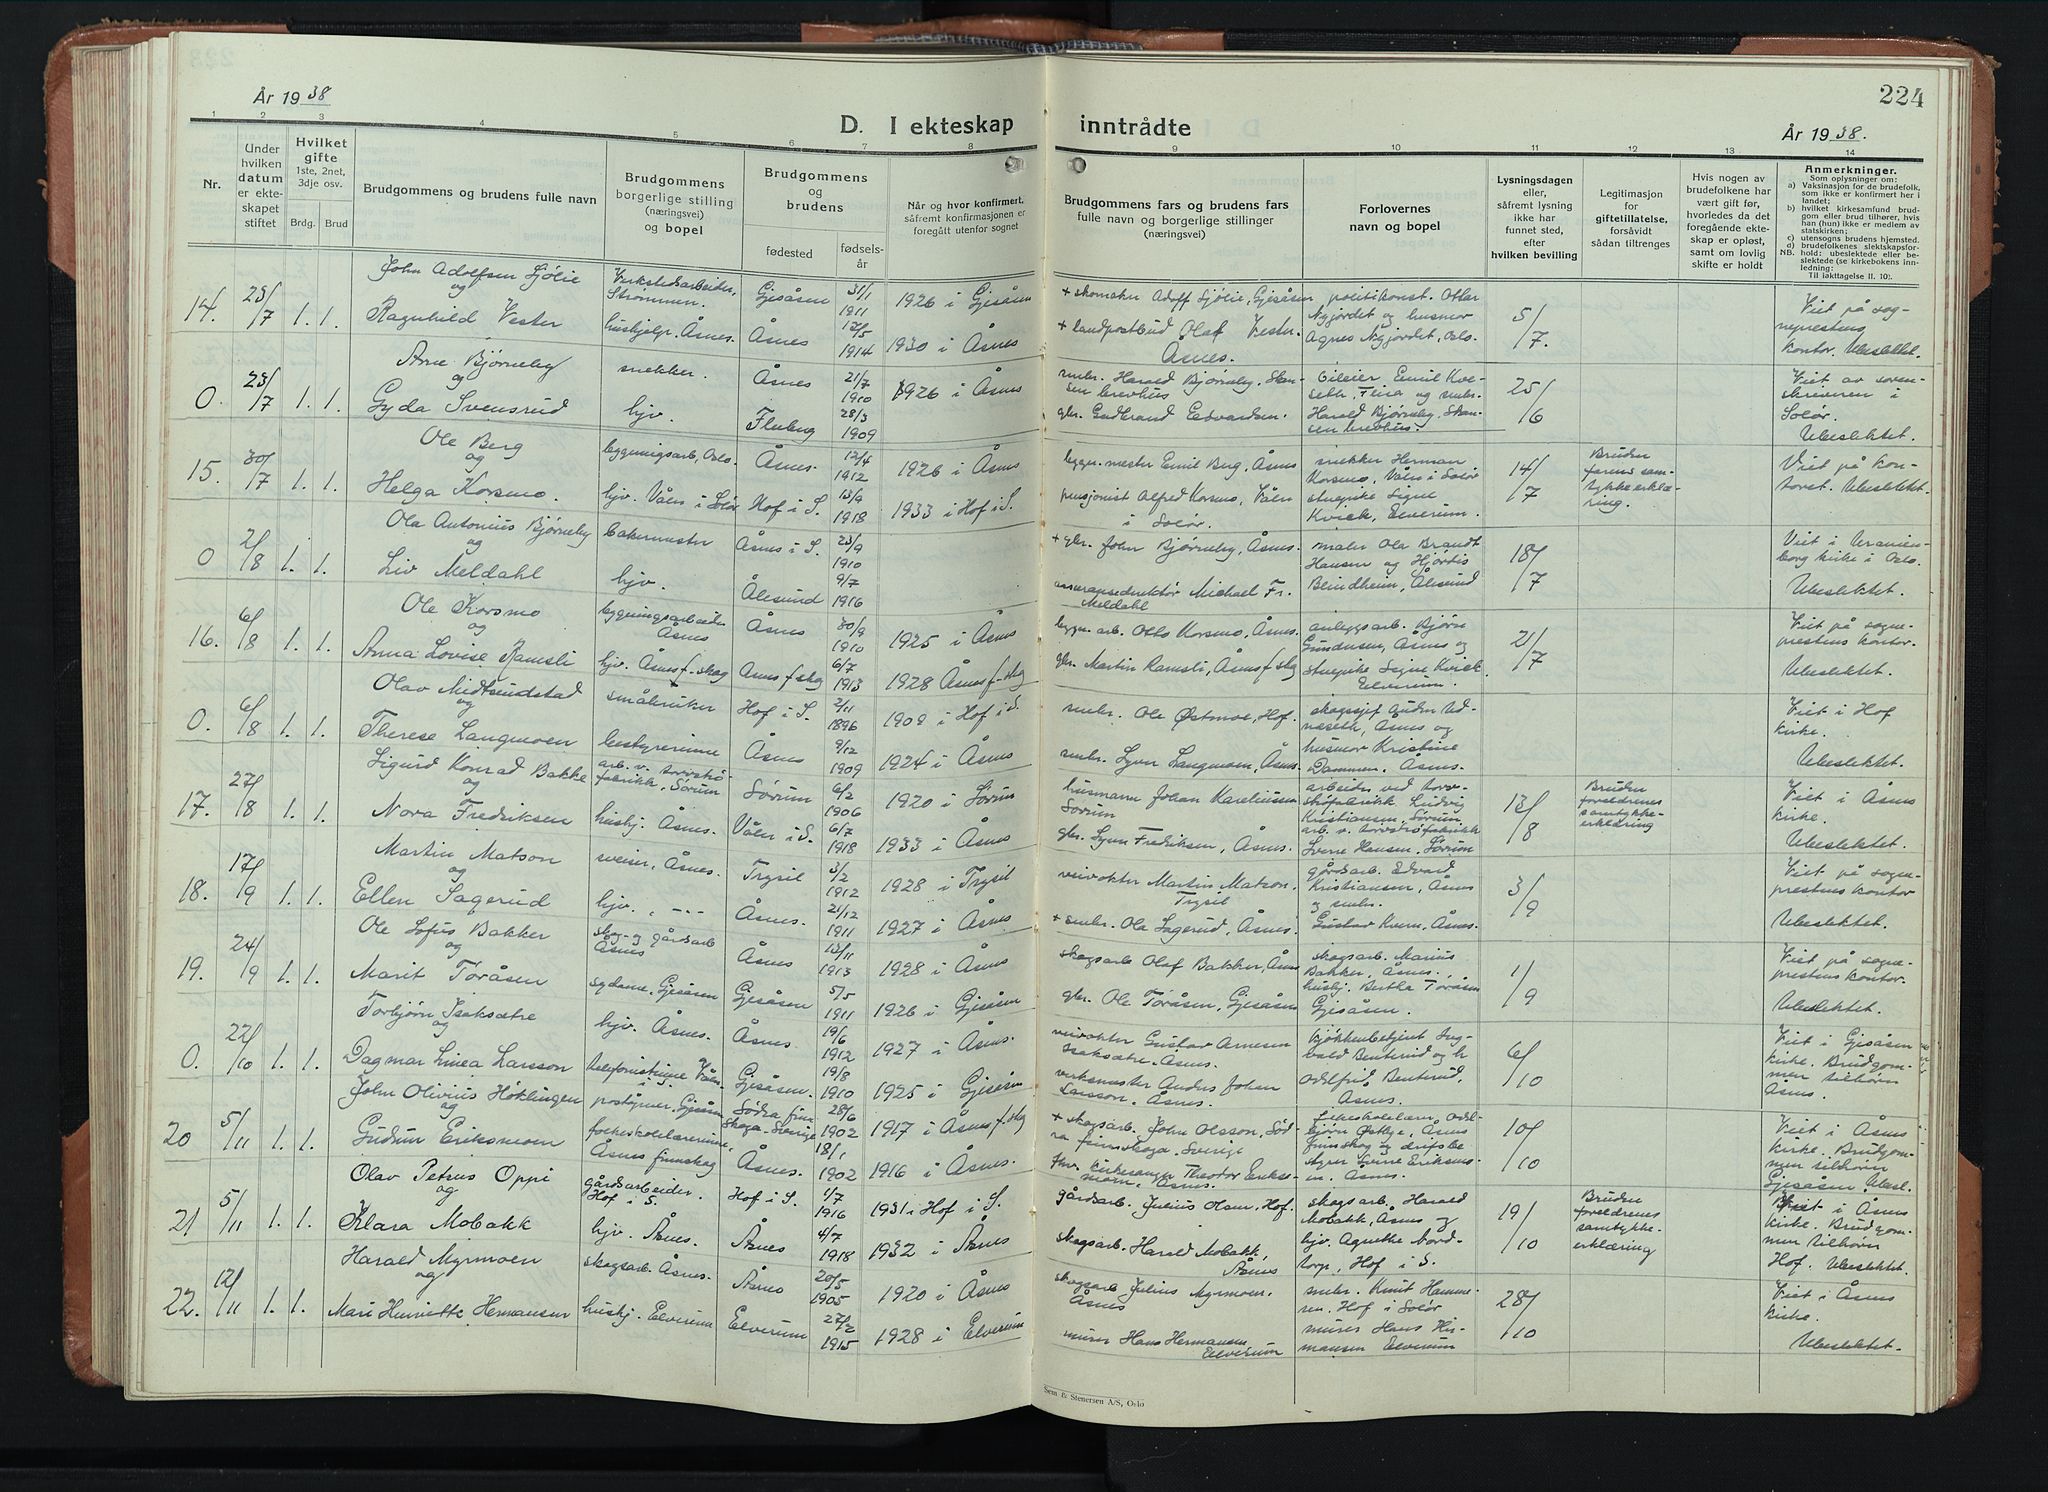 224
År 1938
D. I ekteskap inntrådte
År 1938.
1 2 3 4 5 6 7 8 9 10 11 12 13 14
Nr.
Under hvilken datum er ekteskapet stiftet
Hvilket gifte
1ste, 2net, 3dje osv.
Brdg. Brud
Brudgommens og brudens fulle navn
Brudgommens borgerlige stilling (næringsvei) og bopel
Brudgommens og brudens
fødested fødselsår
Når og hvor konfirmert, såfremt konfirmasjonen er foregått utenfor sognet
Brudgommens fars og brudens fars fulle navn og borgerlige stillinger (næringsvei)
Forlovernes navn og bopel
Lysningsdagen eller, såfremt lysning ikke har funnet sted, efter hvilken bevilling
Legitimasjon for giftetillatelse, forsåvidt sådan tiltrenges
Hvis nogen av brudefolkene har vært gift før, hvorledes da det foregående ekteskap er opløst, samt om lovlig skifte er holdt
Anmerkninger.
Som oplysninger om:
a) Vaksinasjon for de brudefolk, som ikke er konfirmert her i landet;
b) hvilket kirkesamfund brudgom eller brud tilhører, hvis han (hun) ikke er medlem av statskirken;
c) utensogns brudens hjemsted.
d) brudefolkenes slektskapsforhold: ubeslektede eller beslektede (se kirkebokens innledning:
NB. Til iakttagelse II. 10).
14. 23/7 1. 1. John Adolfsen Sjølie Verkstedsarbeider, Strømmen. Gjesåsen 31/1 1911 1926 i Gjesåsen + skomaker Adolf Sjølie, Gjesåsen politikonst. Ottar Nyjordet og husmor 5/7. Viet på sogneprestens kontor. Ubeslektet.
og
Ragnhild Vester hushjelp. Åsnes. Åsnes 12/5 1914 1930 i Åsnes + landpostbud Olaf Vester. Åsnes. Agnes Nyjordet, Oslo.
0. 23/7 1. 1. Arne Bjørneby snekker. Åsnes 21/7 1910 1926 i Åsnes smbr. Harald Bjørneby, Skansen brevhus Harald Bjørneby, Skansen brevhus. 25/6 Viet av sorenskriveren i Solør. Ubeslektet.
og
Gyda Svensrud hjv. Fluberg 28/3 1909 gbr. Gudbrand Edvardsen.
15. 30/7 1. 1. Ole Berg bygningsarb, Oslo. Åsnes. 12/4 1912 1926 i Åsnes byggm. mester Emil Berg, Åsnes snekker Herman Korsmo, Våler i Solør 14/7 Bruden farens samtykkeerklæring. Viet på kontoret. Ubeslektet.
og
Helga Korsmo. hjv. Våler i Solør Hof i S. 13/9 1918 1933 i Hof i S. pensjonist Alfred Korsmo, Våler i Solør. stuepike Signe Kvick, Elverum.
0 2/8 1. 1. Ola Antonius Bjørneby bakermester Åsnes i S. 23/9 1910 + gbr. John Bjørneby, Åsnes. maler Ola Brandt Hansen og Hjørdis 18/7 Viet i Uranienborg kirke i Oslo. Ubeslektet
og
Liv Meldahl hjv. Ålesund 9/7 1916 assuransedirektør Michael Fr. Meldahl Blindheim, Ålesund
16. 6/8 1. 1. Ole Korsmo bygningsarbeider Åsnes Åsnes 30/9 1910 1925 i Åsnes bygn. arb. Otto Korsmo, Åsnes. anleggsarb. Bjørn Gundersen, Åsnes og 21/7 Viet på sogneprestens kontor. Ubeslektet
og
Anna Lovise Ramsli hjv. Åsnes f. skog Åsnes f skog 6/7 1913 1928 Åsnes f. skog gbr. Martin Ramsli, Åsnes f skog stuepike Signe Kvick Elverum.
0. 6/8 1. 1. Olav Midtsundstad småbruker Hof i S. 2/11 1896 1909 i Hof i S smbr. Ole Østmoe, Hof. skogsjef Auden Udneseth, Åsnes og Viet i Hof kirke. Ubeslektet.
og
Therese Langmoen bestyrerinne Åsnes 9/12 1909 1924 i Åsnes smbr. Syver Langmoen, Åsnes husmor Kristine Dammen. Åsnes.
17. 27/8 1. 1. Sigurd Konrad Bakke arb. v. torvstrøfabrikk, Sørum Sørum 6/2 1906 1920 i Sørum husmann Johan Kareliussen Sørum arbeider ved torvstrøfabrikk Ludvig Kristiansen, Sørum 13/8 Bruden foreldrenes samtykkeerklæring Viet i Åsnes kirke. Ubeslektet.
og
Nora Fredriksen hushj. Åsnes. Våler i S. 6/7 1918 1933 i Åsnes gbr. Syver Fredriksen, Åsnes. arb. v. torvstrøfabrikk Sverre Hansen, Sørum
18. 17/9 1. 1. Martin Matson sveiser, Åsnes. Trysil 3/2 1912 1928 i Trysil veivokter Martin Matson. Trysil gårdsarb. Edvard Kristiansen, Åsnes og smbr. 3/9 Viet på sogneprestens kontor Ubeslektet.
og
Ellen Sagerud hjv. „ -"- Åsnes. 21/12 1911 1927 i Åsnes + smbr. Ola Sagerud, Åsnes. Gustav Kvern, Åsnes.
19. 24/9 1. 1. Ole Lofus Bakker skog- og gårdsarb Åsnes Åsnes 13/11 1913 1928 i Åsnes skogsarb Olaf Bakker, Åsnes skogsarb. Marius Bakker, Åsnes. 1/9 Viet på sogneprestens kontor. Ubeslektet.
og
Marit Toråsen sydame, Gjesåsen Gjesåsen 5/5 1911 1926 i Gjesåsen gbr. Ole Toråsen, Gjesåsen hushj. Bertha Toråsen Gjesåsen.
0. 22/10 1. 1. Torbjørn Isaksætre hjv. Åsnes. Åsnes. 19/6 1912 1927 i Åsnes. veivokter Gustav Arnesen Isaksætre. Åsnes. Ingvald Benterud og 6/10 Viet i Gjesåsen kirke. Brudgommen tilhører Åsnes.
og
Dagmar Linea Larsson telefonistinne Våler i S. Gjesåsen. 19/8 1910 1925 i Gjesåsen verksmester Anders Johan Larsson. Åsnes. Odelfrid Benterud, Åsnes.
20 5/11 1. 1. John Olivius Høklingen postbymr. Gjesåsen. Södra finnskoga - Sverige 28/6 1902 1917 i Åsnes f. skog + skogsarb. John Olsson, Södra finnskoga, Sverige. Odelbjørn Østlye, Åsnes finnskog og driftsbe 10/10 Viet i Åsnes kirke. Brudgommen tilhører Gjesåsen. Ubesl.
og
Gudrun Eriksmoen folkeskolelærerinne, Åsnes finnskog Åsnes. 18/1 1902 1916 i Åsnes. fhv. kirkesanger Theodor Eriksmoen, Åsnes. styrer Sverre Eriksmoen. Åsnes.
21 5/11 1. 1. Olav Petrus Oppi gårdsarbeider. Hof i S. Hof i S. 1/7 1916 1931 i Hof i S. gårdsarb. Julius Olsen, Hof. skogsarb. Harald Mobakk, Åsnes og 19/10 Bruden foreldrenes samtykkeerklæring Viet i Åsnes kirke. Brudgommen tilhører Hof. Ubeslektet.
og
Klara Mobakk hjv. Åsnes. Åsnes 4/7 1918 1932 i Åsnes skogsarb. Harald Mobakk, Åsnes hjv. Agnethe Nordtorp, Hof i S.
22. 12/11 1. 1. Harald Myrmoen skogsarb. Åsnes. Åsnes 20/5 1905 1920 i Åsnes skogsarb Julius Myrmoen. Åsnes smbr. Knut Hammeren. Hof i Solør 28/10 Viet i Åsnes kirke. Ubeslektet.
og
Mari Henriette Hermansen hushj. Elverum Elverum 27/2 1915 1928 i Elverum murer Hans Hermansen Elverum murer Hans Hermansen Elverum
Sem & Stenersen A/S, Oslo